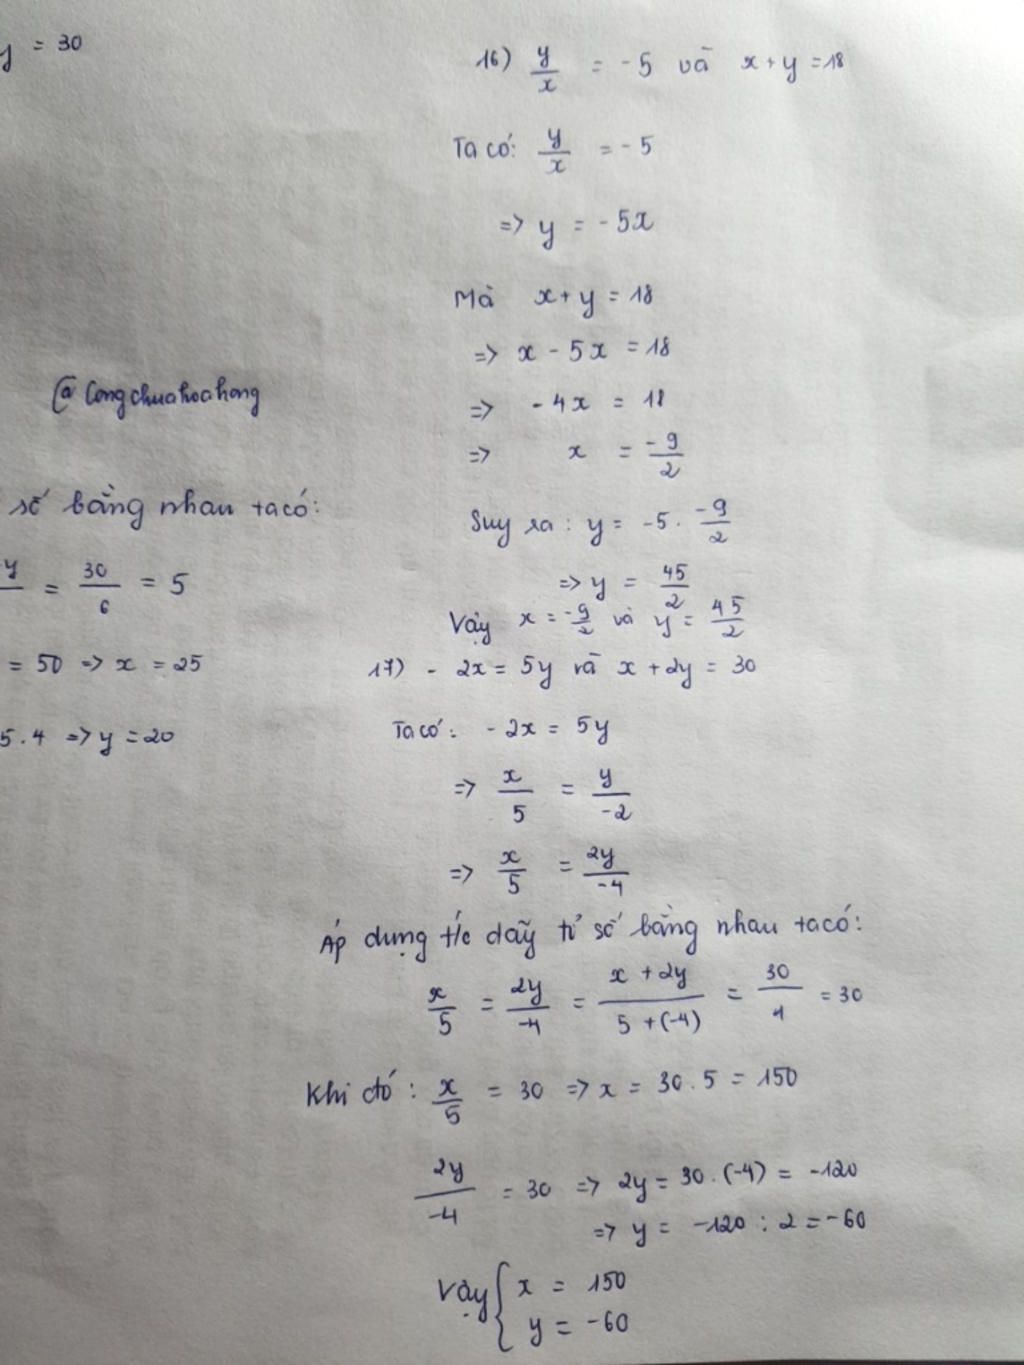 y = 30
@ Congchuahoahong
số bằng nhau ta có:
y = 30/6 = 5
= 50 => x = 25
5.4 => y = 20
16) y/x = -5 và x + y = 18
Ta có: y/x = -5
=> y = -5x
Mà x + y = 18
=> x - 5x = 18
=> -4x = 18
=> x = -9/2
Suy ra: y = -5 . -9/2
=> y = 45/2
Vậy x = -9/2 và y = 45/2
17) - 2x = 5y và x + 2y = 30
Ta có: -2x = 5y
=> x/5 = y/-2
=> x/5 = 2y/-4
Áp dụng t/c dãy tỉ số bằng nhau ta có:
x/5 = 2y/-4 = x + 2y/5 + (-4) = 30/1 = 30
Khi đó: x/5 = 30 => x = 30.5 = 150
2y/-4 = 30 => 2y = 30.(-4) = -120
=> y = -120 : 2 = -60
Vậy { x = 150
y = -60